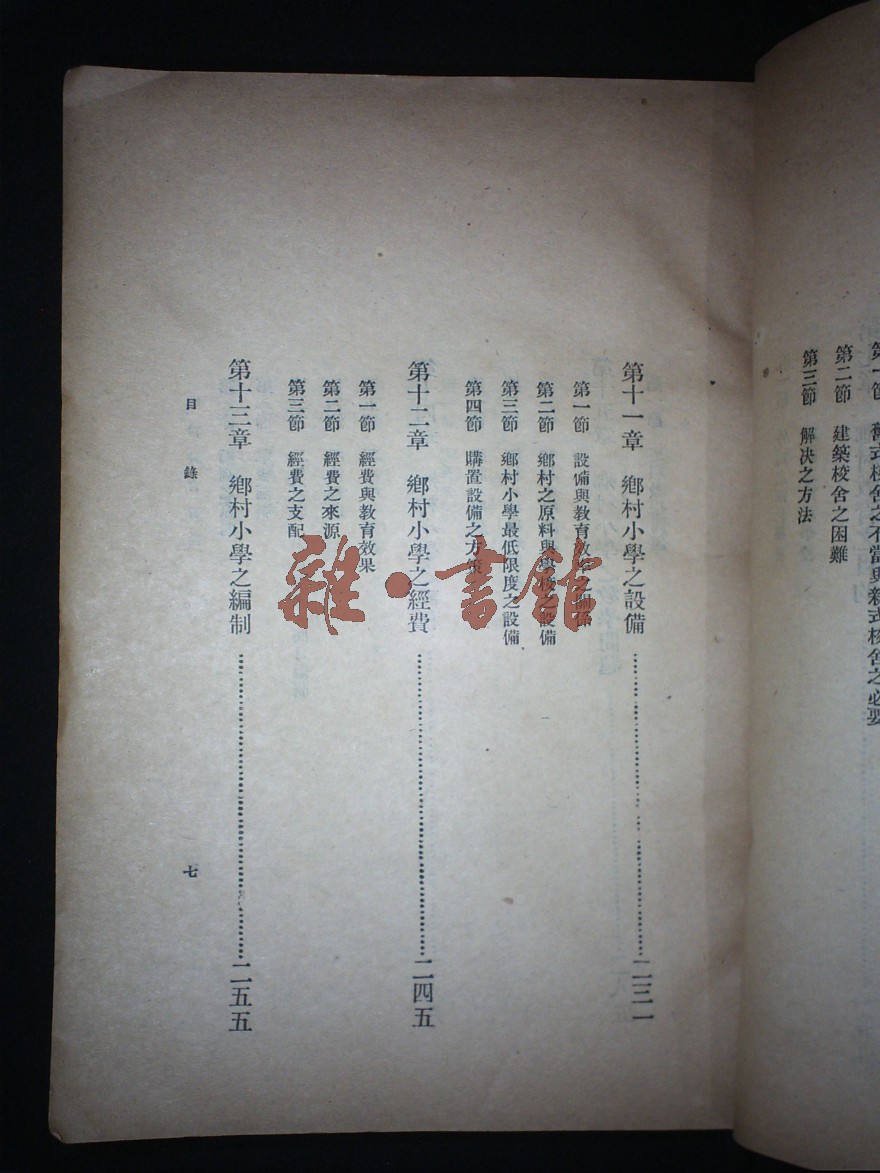 第一節　舊式校舍之不當與新式校舍之必要
第二節　建築校舍之困難
第三節　解决之方法
第十一章　鄉村小學之設備……二三一
第一節　設備與教育效率之關係
第二節　鄉村之原料與學校之設備
第三節　鄉村小學最低限度之設備
第四節　購置設備之方策
第十二章　鄉村小學之經費……二四五
第一節　經費與教育效果
第二節　經費之來源
第三節　經費之支配
第十三章　鄉村小學之編制……二五五
目錄
七
雜·書館